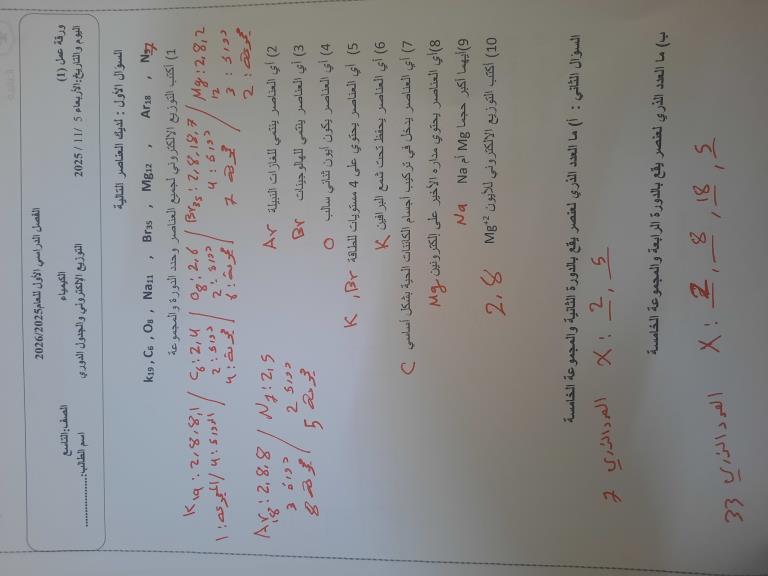 الفصل الدراسي الأول للعام 2026/2025
ورقة عمل (1) الكيمياء الصف:التاسع
اليوم والتاريخ:الأربعاء 5 /11 /2025 التوزيع الإلكتروني والجدول الدوري اسم الطالب:................
السؤال الأول : لديك العناصر التالية
k19 , C6 , O8 , Na11 , Br35 , Mg12 , Ar18 , N7
1) اكتب التوزيع الالكتروني لجميع العناصر وحدد الدورة والمجموعة
K19 : 2,8,8,1 / C6 : 2,4 / O8 : 2,6 / Br35 : 2,8,18,7 / Mg : 2,8,2
الدورة: 4 / المجموعة: 1
دورة: 2
مجموعة: 4
دورة: 2
مجموعة: 6
دورة: 4
مجموعة: 7
12
دورة: 3
مجموعة: 2
Ar18 : 2,8,8 / N7 : 2,5
دورة 3
مجموعة 8
دورة 2
مجموعة 5
2) أي العناصر ينتمي للغازات النبيلة Ar
3) أي العناصر ينتمي للهالوجينات Br
4) أي العناصر يكون أيون ثنائي سالب O
5) أي العناصر يحتوي على 4 مستويات للطاقة K , Br
6) أي العناصر يحفظ تحت شمع البرافين K
7) أي العناصر يدخل في تركيب أجسام الكائنات الحية بشكل أساسي C
8)أي العناصر يحتوي مداره الأخير على الكترونين Mg
9)أيهما أكبر حجما Mg أم Na Na
10) اكتب التوزيع الالكتروني للأيون Mg+2 2,8
السؤال الثاني : أ) ما العدد الذري لعنصر يقع بالدورة الثانية والمجموعة الخامسة
X : 2 , 5 العدد الذري 7
ب) ما العدد الذري لعنصر يقع بالدورة الرابعة والمجموعة الخامسة
X : 2 , 8 , 18 , 5 العدد الذري 33